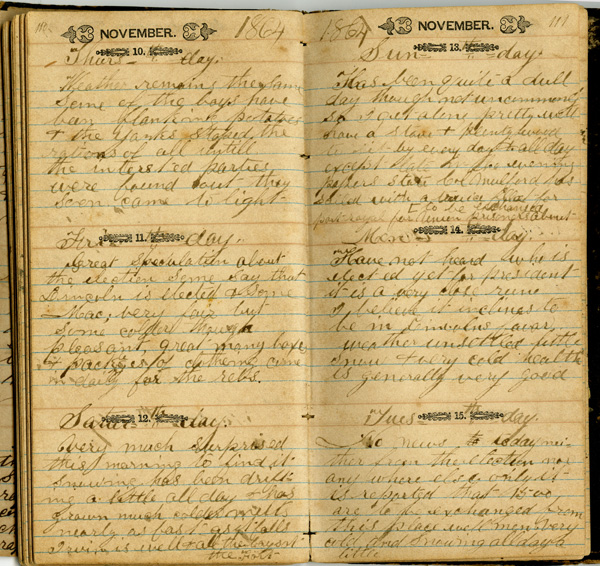 NOVEMBER. 1864
Thurs- 10. th day.
Weather remains the same
Some of the boys have
been planking potatoes
& the Yanks stoped the
rations of all untill
the interested parties
were found out they
soon came to light
Fri- 11. th day.
Great Speculation about
the election some say that
Lincoln is elected & some
Mac, very fair but
some colder though
pleasant, great many boxes
& packages of clothing come
in daily for the rebs.
Satur- 12. th day.
Very much surprised
this morning to find it
snowing has been drift-
ing a little all day & has
grown much colder melts
nearly as fast as it falls
Irwin is well
the
1864 NOVEMBER. 111
Sun- 13. th day.
Has been quite a dull
day though not uncommonly
so I get along pretty well
have a stove & plenty wood
to sit by every day & all day
except
papers state Col Mulford has
sailed with
to be exchanged
port royal for union prisoners about
Mon- 14. th day.
Have not heard who is
elected yet for president
it is a very close run
I believe it inclines to
be in Lincolns favor,
weather unsettled little
snow & very cold health
is generally very good
Tues- 15. th day.
No news to day nei-
ther from the election nor
any where else only it
is reported that 1500
are to be exchanged from
this place well men very
cold and snowing all day a
little